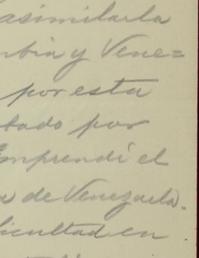 asimilarla
mbia y Vene=
por esta
tado por
Emprendí el
a de Venezuela.
icultad en